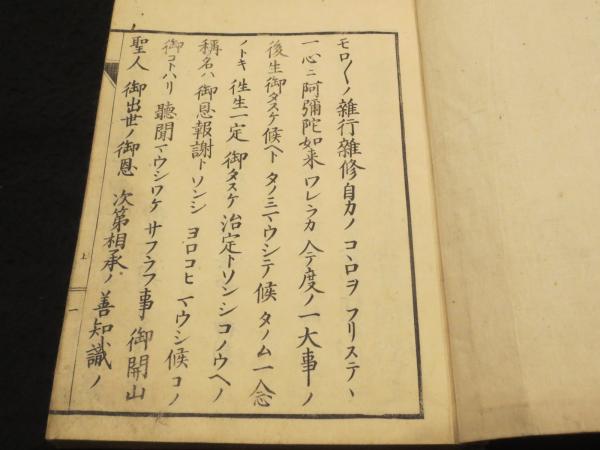 モロ〱ノ 雜行雜修自力ノ コヽロヲ フリステヽ
一心ニ 阿彌陀如来 ワレラカ 今度ノ 一大事ノ
後生御タスケ候ヘト タノミマウシテ候 タノム一念
ノトキ 徃生一定 御タスケ 治定トソンシ コノウヘノ
稱名ハ 御恩報謝トソンシ ヨロコヒ マウシ候 コノ
御コトハリ 聽聞マウシワケ サフラフ事 御開山
聖人 御出世ノ御恩 次第相承ノ 善知識ノ
上
一